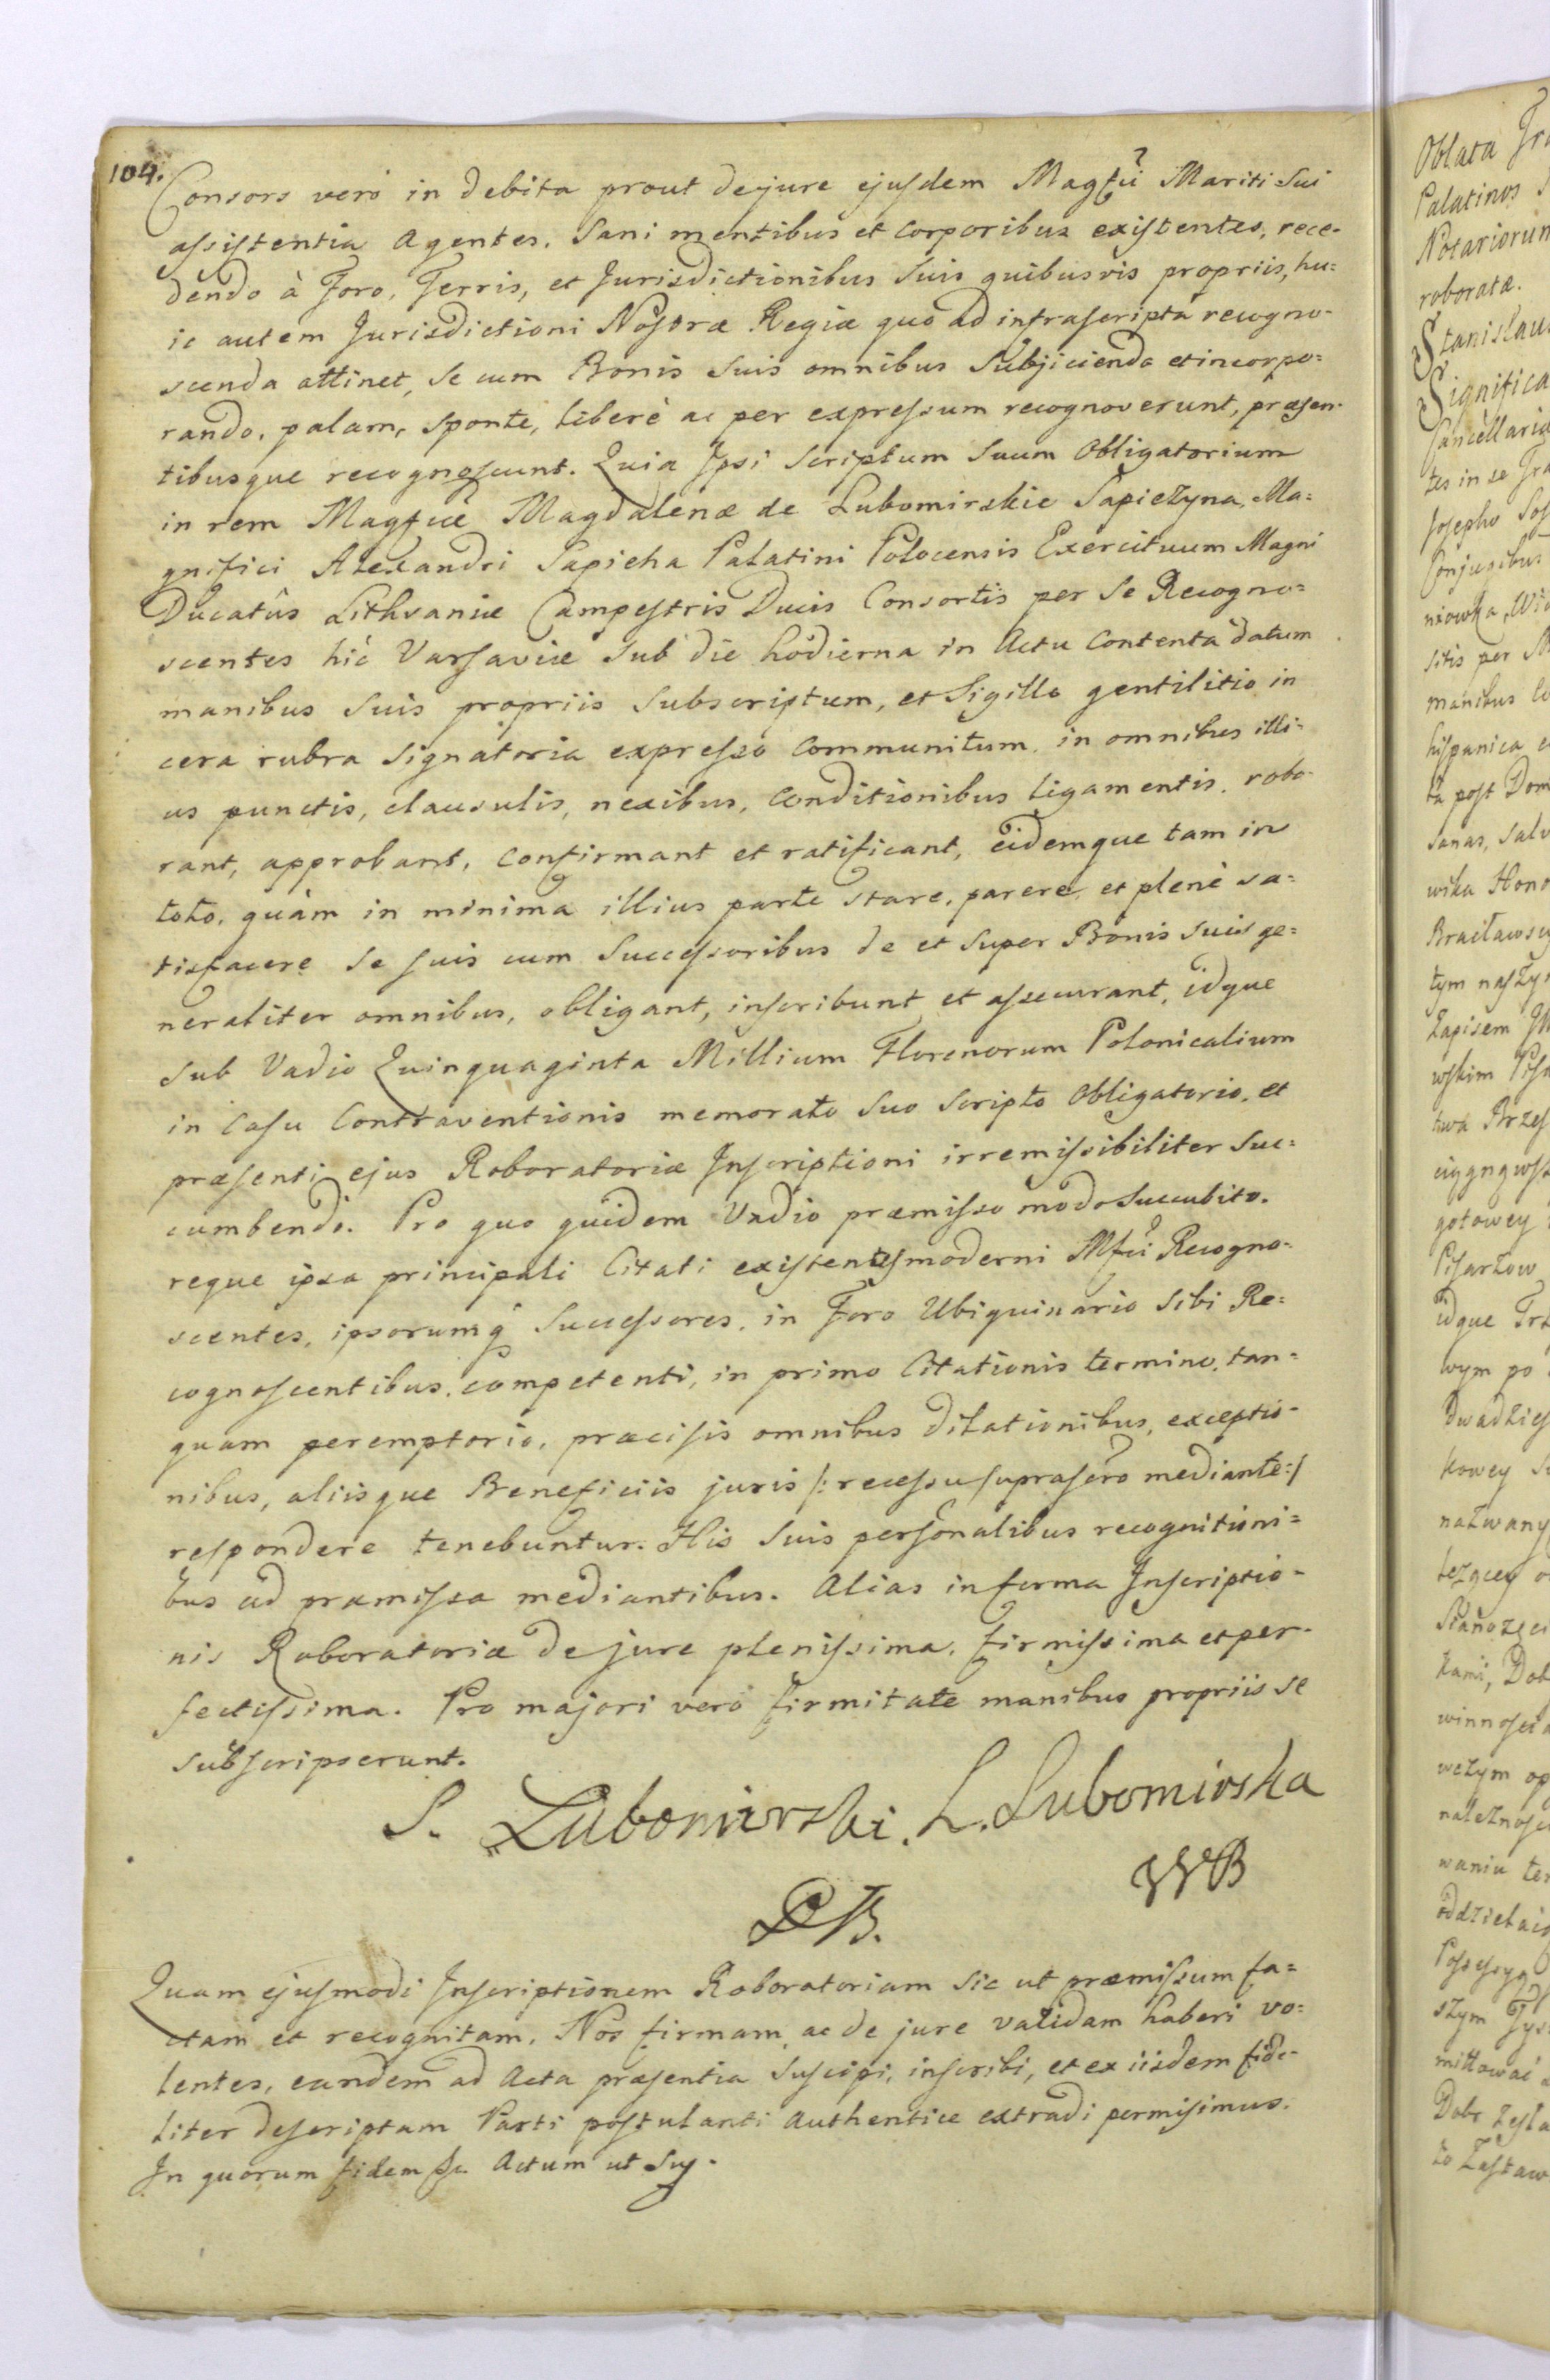 104.
Consors verò in debita prout de jure ejusdem Magfci Mariti Sui
assistentia Agentes, Sani mentibus et Corporibus existentes, rece-
dendo à Foro, Terris, et Jurisdictionibus Suis quibusvis propriis, hu-
ic autem Jurisdictioni Nostræ Regiæ quo ad infrascripta recogno-
scenda attinet, Se cum Bonis Suis omnibus Subjiciendo et incorpo-
rando, palam, sponte, liberè ac per expressum recognoverunt, præsen-
tibusque recognoscunt. Quia Ipsi Scriptum Suum Obligatorium
in rem Magfcæ Magdalenæ de Lubomirskie Sapieżyna, Ma-
gnifici Alexandri Sapieha Palatini Polocensis Exercituum Magni
Ducatûs Lithvaniæ Campestris Ducis Consortis per Se Recogno-
scentes hìc Varsaviæ Sub die hodierna in Actu Contenta datum
manibus Suis propriis Subscriptum, et Sigillo gentilitio in
cera rubra Signatoria expresso Communitum, in omnibus illi-
us punctis, clausulis, nexibus, Conditionibus ligamentis, robo-
rant, approbant, Confirmant et ratificant, eidemque tam in
toto, quàm in minima illius parte stare, parere, et plenè sa-
tisfacere Se suis cum Successoribus de et Super Bonis suis ge-
neraliter omnibus, obligant, inscribunt et assecurant, idque
Sub Vadio Quinquaginta Millium Florenorum Polonicalium
in Casu Contraventionis memorato Suo Scripto Obligatorio, et
præsenti ejus Roboratoriæ Inscriptioni irremissibiliter Suc-
cumbendo. Pro quo quidem Vadio præmisso modo Succubito.
reque ipsa principali Citati existentes moderni Mfci Recogno-
scentes, ipsorumq Successores, in Foro Ubiquinario Sibi Re-
cognoscentibus, competenti, in primo Citationis termino, tan-
quam peremptorio, præcisis omnibus Dilationibus, exceptio-
nibus, aliisque Beneficiis juris /: recessu suprascro mediante :/
respondere tenebuntur. His Suis personalibus recognitioni-
bus ad præmissa mediantibus. Alias in forma Inscriptio-
nis Roboratoriæ de jure plenissima, firmissima et per-
fectissima. Pro majori verò firmitate manibus propriis se
subscripserunt.
S. Lubomirski. L. Lubomirska
WB
PB.
Quam ejusmodi Inscriptionem Roboratoriam Sic ut præmissum fa-
ctam et recognitam, Nos firmam ac de jure validam haberi vo-
lentes, eandem ad Acta præsentia Suscipi, inscribi, et ex iisdem fide-
liter descriptam Parti postulanti Authentice extradi permisimus.
In quorum fidem &c. Actum ut Sup.
Oblata
Palatinos
Notariorum
roboratæ.
Significa
Cancellariæ
Josepho
Conjugibus
sitis per
manibus
hispanica
ta post Dom
sanas, salv
wika Hono
Bracławsc
tym naszy
Zapisem
wskim
twa Brzes
gotowey
Pisarzow
idque
wym po
Dwadzies
kowey
nazwany
kami, Dob
należnosci
waniu
szym
mittować
to Zastaw